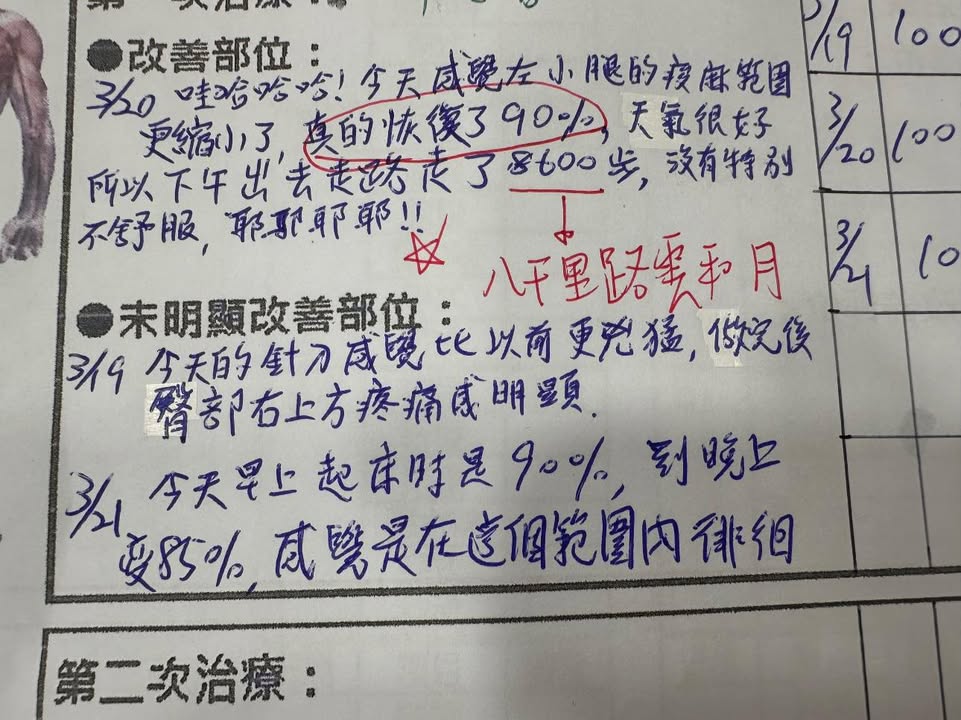 第一次治療：
●改善部位：
3/20 哇哈哈哈！今天感覺左小腿的痠麻範圍
更縮小了，真的恢復了90%，天氣很好
所以下午出去走路走了8600步，沒有特別
不舒服，耶耶耶耶!!
八千里路雲和月
●未明顯改善部位：
3/19 今天的針刀感覺比以前更兇猛，做完後
臀部右上方疼痛感明顯.
3/21 今天早上起床時是90%，到晚上
變85%，感覺是在這個範圍內徘徊
第二次治療：
3/19 100
3/20 100
3/21 10